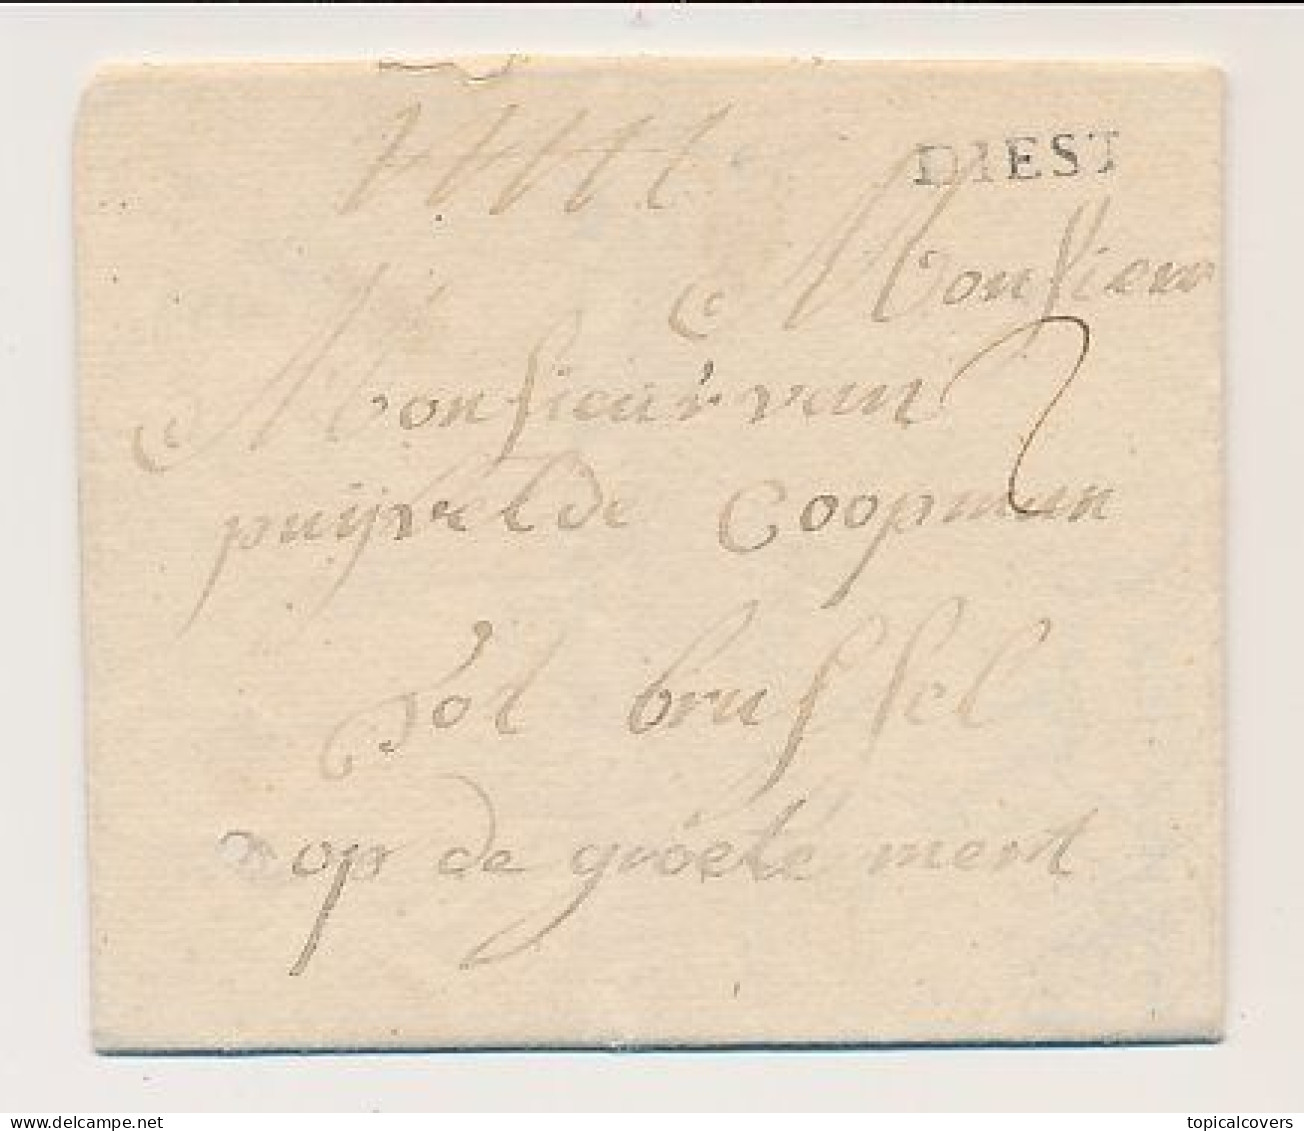 DIEST
Monsieur
Monsieur van
puijvelde Coopman
tot brussel
op de groete mert
topicalcovers